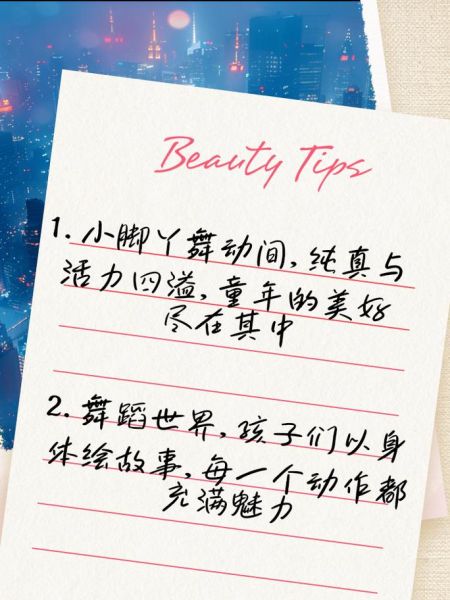 Beauty Tips
1. 小脚丫舞动间，纯真与
活力四溢，童年的美好
尽在其中
2. 舞蹈世界，孩子们以身
体绘故事，每一个动作都
充满魅力